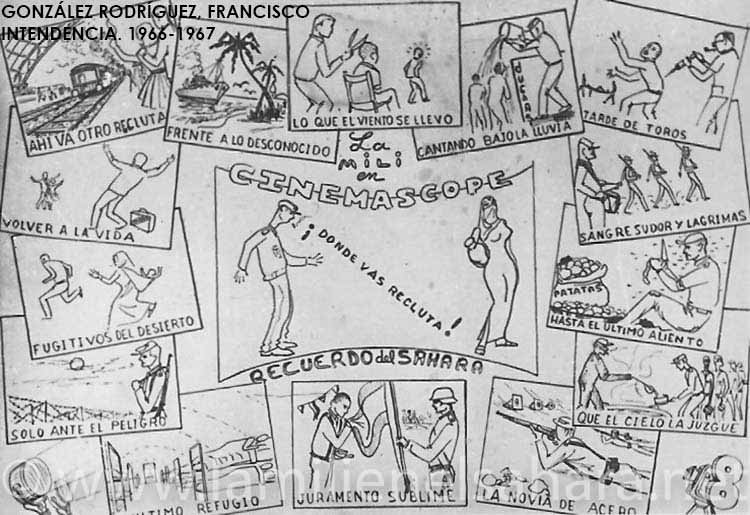 GONZÁLEZ RODRÍGUEZ, FRANCISCO
INTENDENCIA. 1966-1967
AHI VA OTRO RECLUTA
FRENTE A LO DESCONOCIDO
LO QUE EL VIENTO SE LLEVO
DUCHAS
CANTANDO BAJO LA LLUVIA
TARDE DE TOROS
La
MILI
en
CINEMASCOPE
VOLVER A LA VIDA
SANGRE SUDOR Y LAGRIMAS
¡DONDE VAS RECLUTA!
FUGITIVOS DEL DESIERTO
PATATAS
HASTA EL ULTIMO ALIENTO
RECUERDO del SAHARA
SOLO ANTE EL PELIGRO
QUE EL CIELO LA JUZGUE
ULTIMO REFUGIO
JURAMENTO SUBLIME
LA NOVIA DE ACERO
© www.lamilienelsahara.net